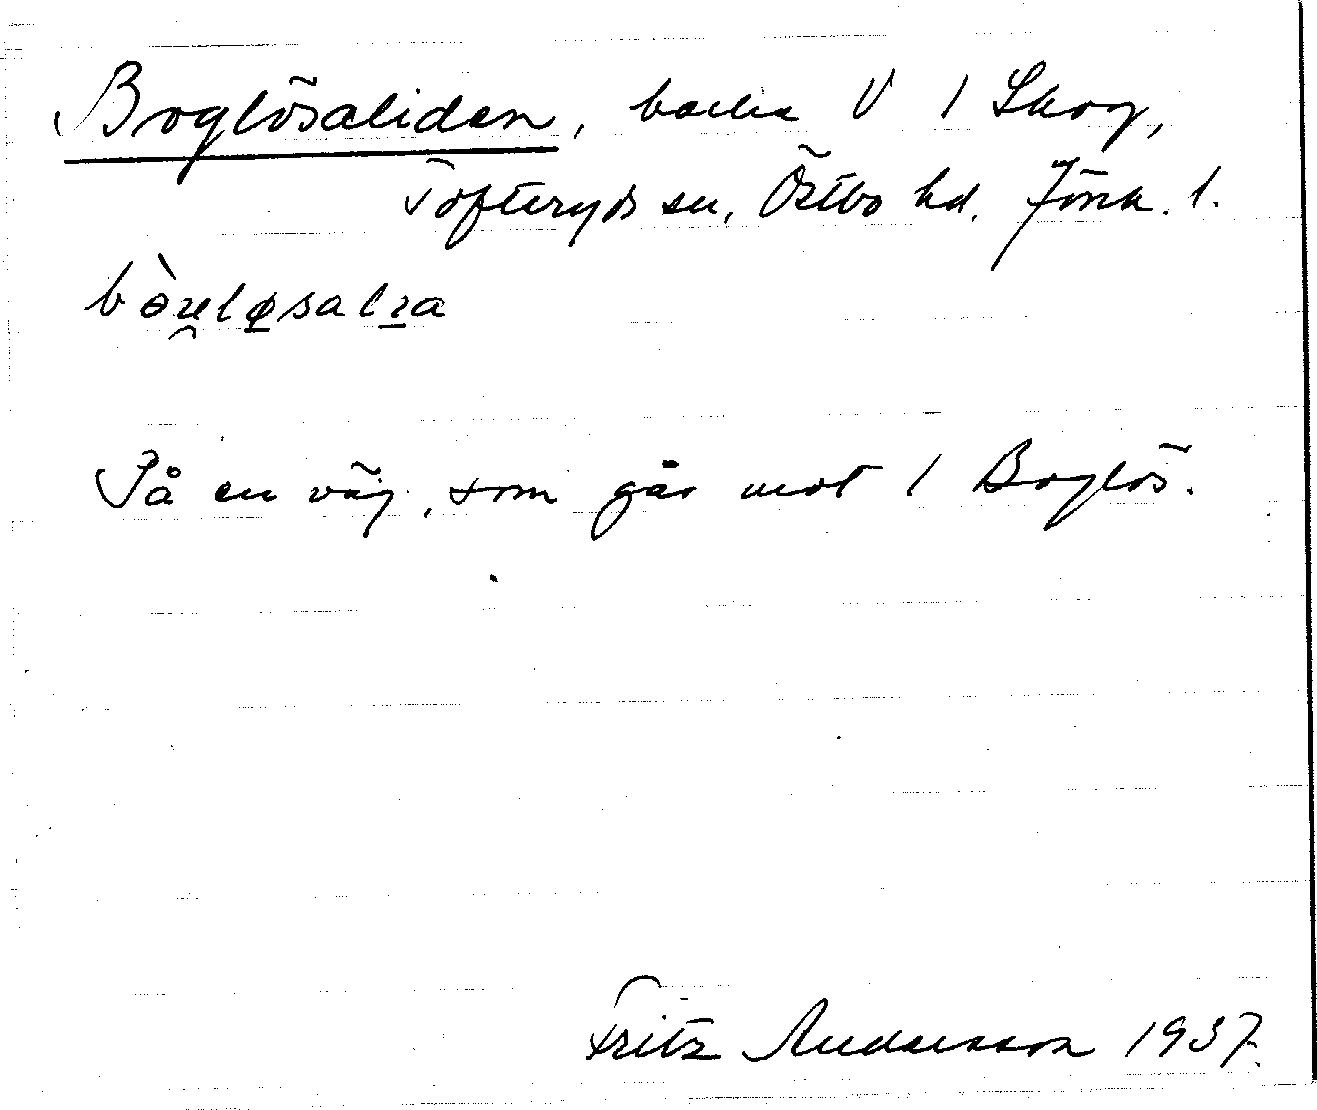 Boglösaliden, backe V 1 Skog,
Tofteryds sn, Östbo hd. Jönk. l.
På en väg, som går mot 1 Boglös.
Fritz Andersson 1937.